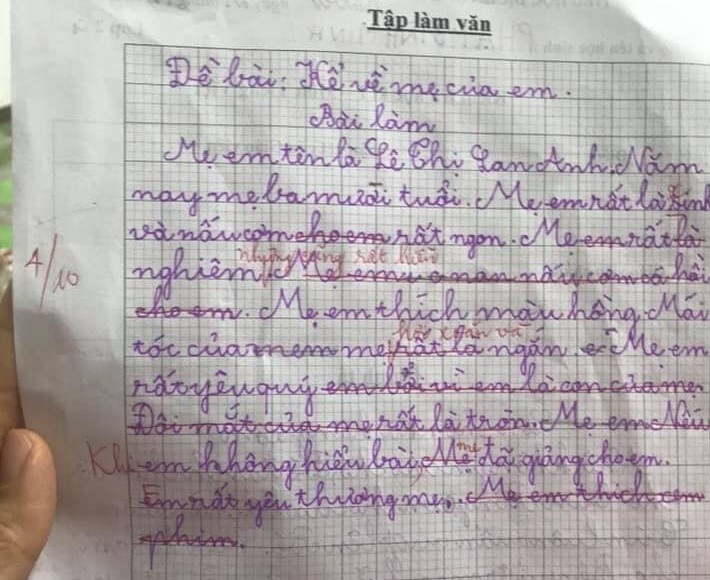 Tập làm văn
Đề bài: Kể về mẹ của em.
Bài làm
Mẹ em tên là Lê Thị Lan Anh. Năm
nay mẹ ba mười tuổi. Mẹ em rất là xinh
và nấu cơm cho em rất ngon. Mẹ em rất là
những cũng rất hiền
4/10
nghiêm. Mẹ em nấu cơm cá hồi
cho em. Mẹ em thích màu hồng. Mái
hơi xoăn và
tóc của mẹ rất là ngắn. Mẹ em
rất yêu quý em bởi vì em là con của mẹ.
Đôi mắt của mẹ rất là tròn. Mẹ em Nếu
Khi em không hiểu bài, Mẹ mẹ đã giảng cho em.
Em rất yêu thương mẹ. Mẹ em thích xem
phim.